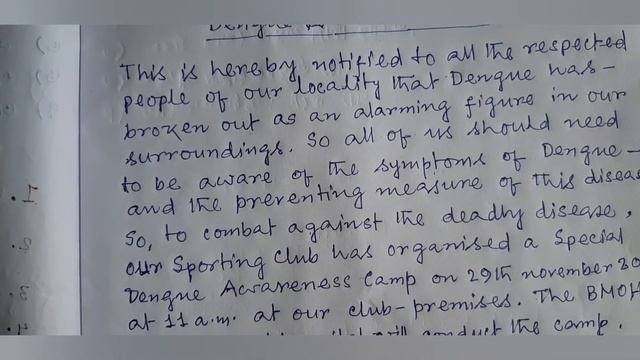 Dengue
This is hereby notified to all the respected
people of our locality that Dengue has-
broken out as an alarming figure in our
surroundings. So all of us should need
to be aware of the symptoms of Dengue-
and the preventing measure of this diseas
So, to combat against the deadly disease,
our Sporting Club has organised a Special
Dengue Awareness Camp on 29th november 20
at 11 a.m. at our club-premises. The BMOH
will conduct the camp.